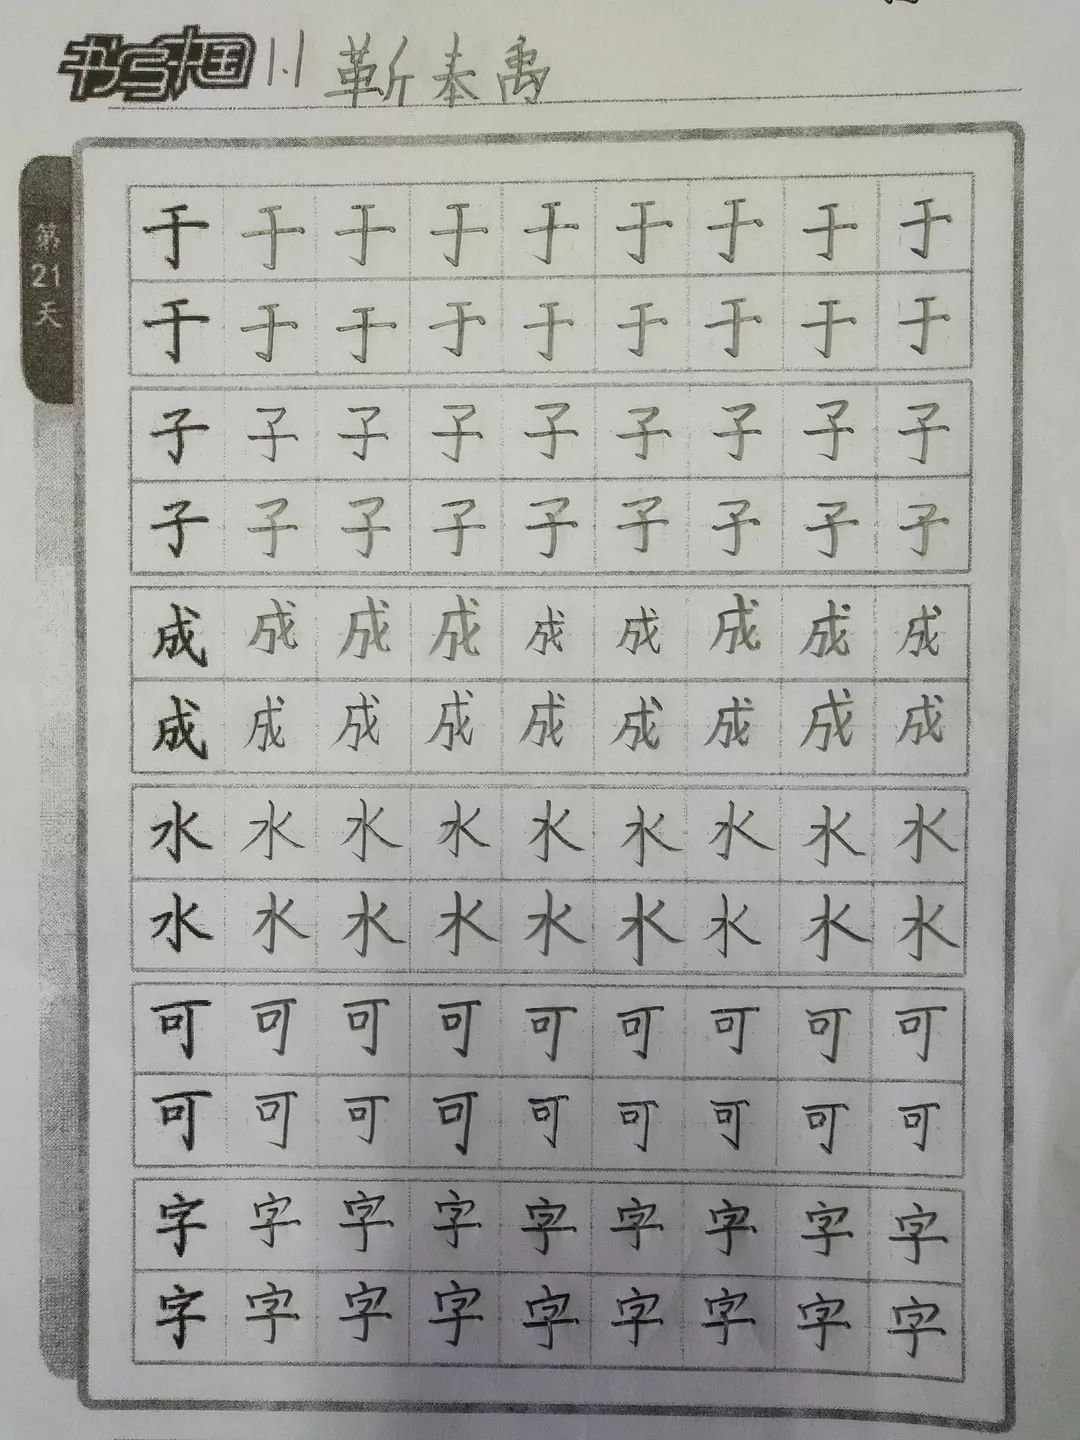 书写中国 1.1 靳泰禹
第21天
于于于于于于于于于
于于于于于于于于于
子子子子子子子子子
子子子子子子子子子
成成成成成成成成成
成成成成成成成成成
水水水水水水水水水
水水水水水水水水水
可可可可可可可可可
可可可可可可可可可
字字字字字字字字字
字字字字字字字字字